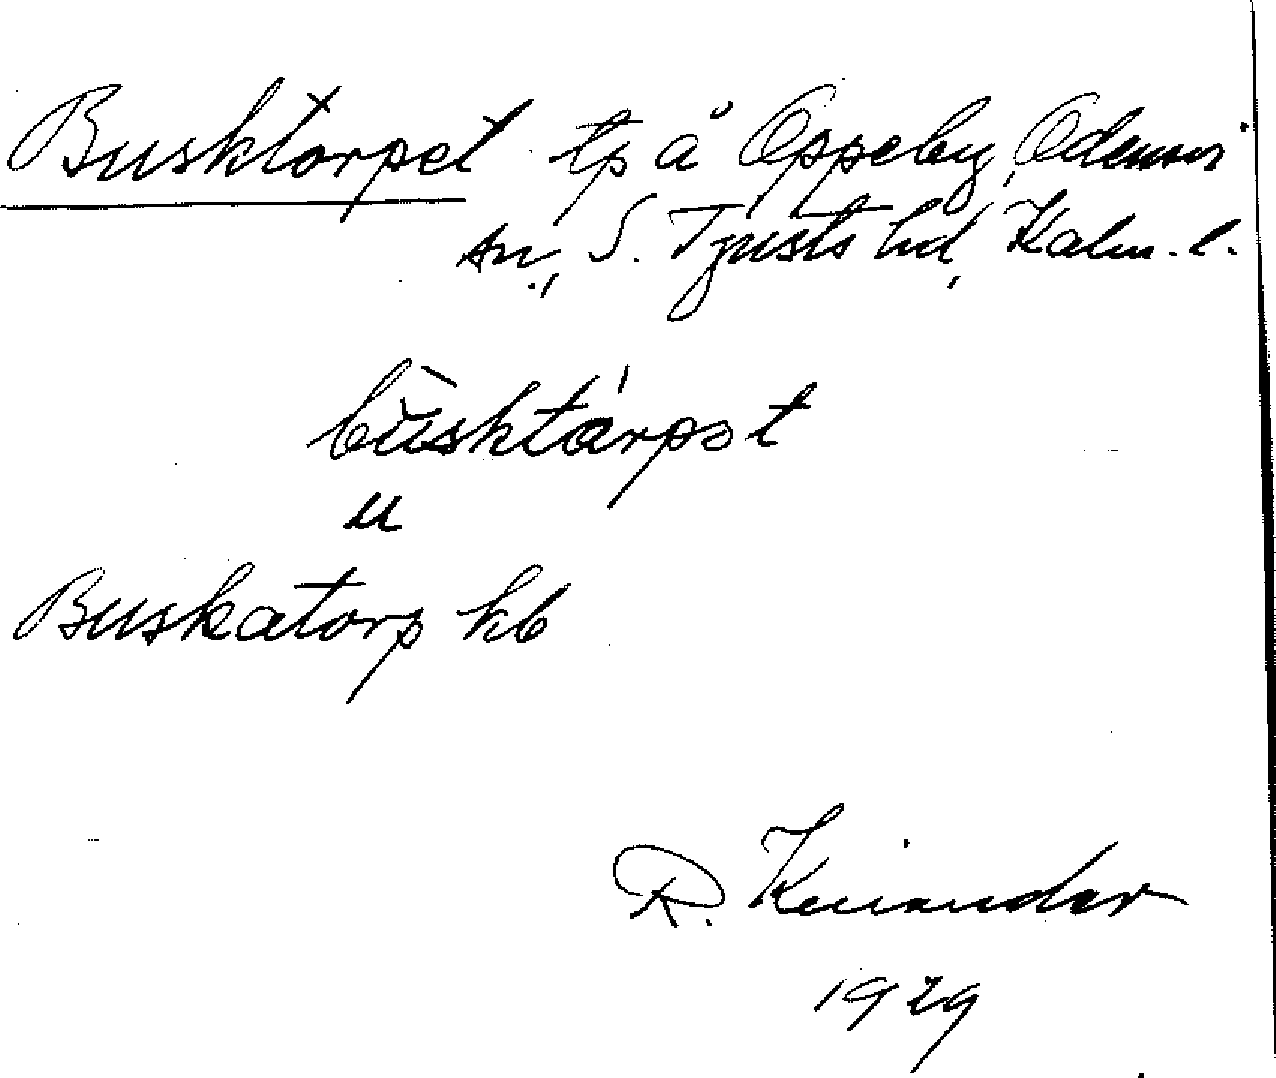 Busktorpet tp å Oppeby, Odensvi
sn, S. Tjusts hd, Kalm. l.
bùsktárpət
u
Buskatorp kb
R. Kinander
1929